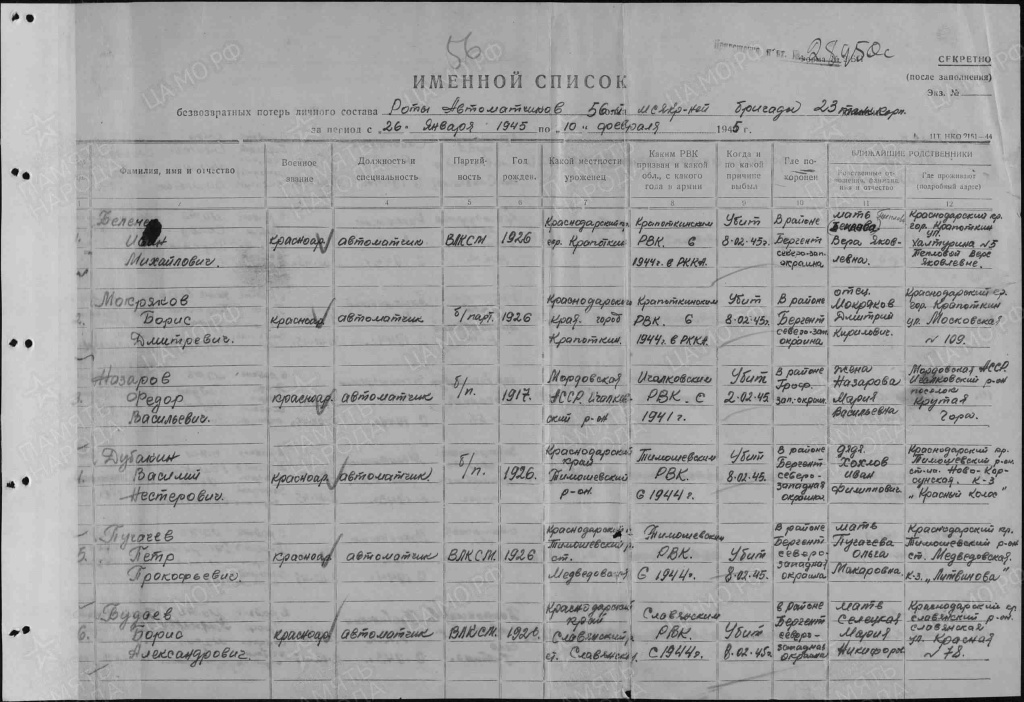 56
28950с
СЕКРЕТНО
(после заполнения)
Экз. №
ИМЕННОЙ СПИСОК
безвозвратных потерь личного состава Роты Автоматчиков 56-ой бригады 23
за период с „26" Января 1945 по „10" февраля 1945 г.
Фамилия, имя и отчество
Военное звание
Должность и специальность
Партий- ность
Год рожден.
Какой местности уроженец
Каким РВК призван и какой обл., с какого года в армии
Когда и по какой причине выбыл
Где по- хоронен
БЛИЖАЙШИЕ РОДСТВЕННИКИ
Где проживают (подробный адрес)
1 2 3 4 5 6 7 8 9 10 11 12
Михайлович.
красноар. автоматчик ВЛКСМ 1926
Краснодарский гор. Крапоткин
Крапоткинским РВК. с 1944г. в РККА.
Убит 8-02-45г.
В районе Бергент северо-зап. окраина
мать Вера Яков- левна.
Краснодарский кр. гор. Крапоткин ул. Халтурина №5 Вере Яковлевне.
2. Мокряков Борис Дмитревич.
красноар автоматчик б/парт. 1926
Краснодарский Край. город Крапоткин.
Крапоткинским РВК. с 1944г. в РККА.
Убит 8.02.45г.
В районе Бергент северо-зап. окраина
отец. Мокряков Дмитрий Кирилович.
Краснодарский кр. гор. Крапоткин ул. Московская № 109.
3. Назаров Федор Васильевич.
красноар. автоматчик б/п. 1917.
Мордовская АССР. Ичалков- ский р-он
Ичалковским РВК. с 1941г.
Убит 2-02-45.
В районе зап. окраин.
жена Назарова Мария Васильевна
Мордовская АССР Ичалковский р-он поселок Крутая Гора.
4. Дубакин Василий Нестерович.
красноар. автоматчик. б/п. 1926.
Краснодарский край Тимошевский р-он.
Тимошевским РВК. с 1944г.
Убит 8-02-45.
В районе Бергент северо- западная окраина
дядя. Хохлов иван филиппович.
Краснодарский кр. Тимошевский р-он. ст-ца. Ново-Кор- сунская. к-з „Красный Колос"
5. Пугачев Петр Прокофьевич.
красноар. автоматчик ВЛКСМ. 1926
Краснодарский к. Тимошевский р. ст. Медведовская
Тимошевским РВК. с 1944г.
Убит 8-02-45.
В районе Бергент северо- западная окраина
мать Пугачева Ольга Макаровна
Краснодарский кр. Тимошевский р-он ст. Медведовская. к-з. „Литвинова"
6. Будаев Борис Александрович.
красноар. автоматчик ВЛКСМ. 1926.
Краснодарский край Славянский р. ст. Славянская
Славянским РВК. с 1944г.
Убит 8-02-45г
в районе Бергент северо- западная окраина
мать Селецкая Мария Никифоров
Краснодарский кр славянский р-он. славянская ул. Красная № 78.